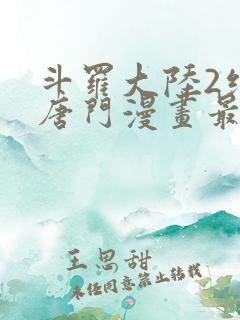 斗羅大陸2
唐門漫畫最
王思甜
未任同意禁止转载